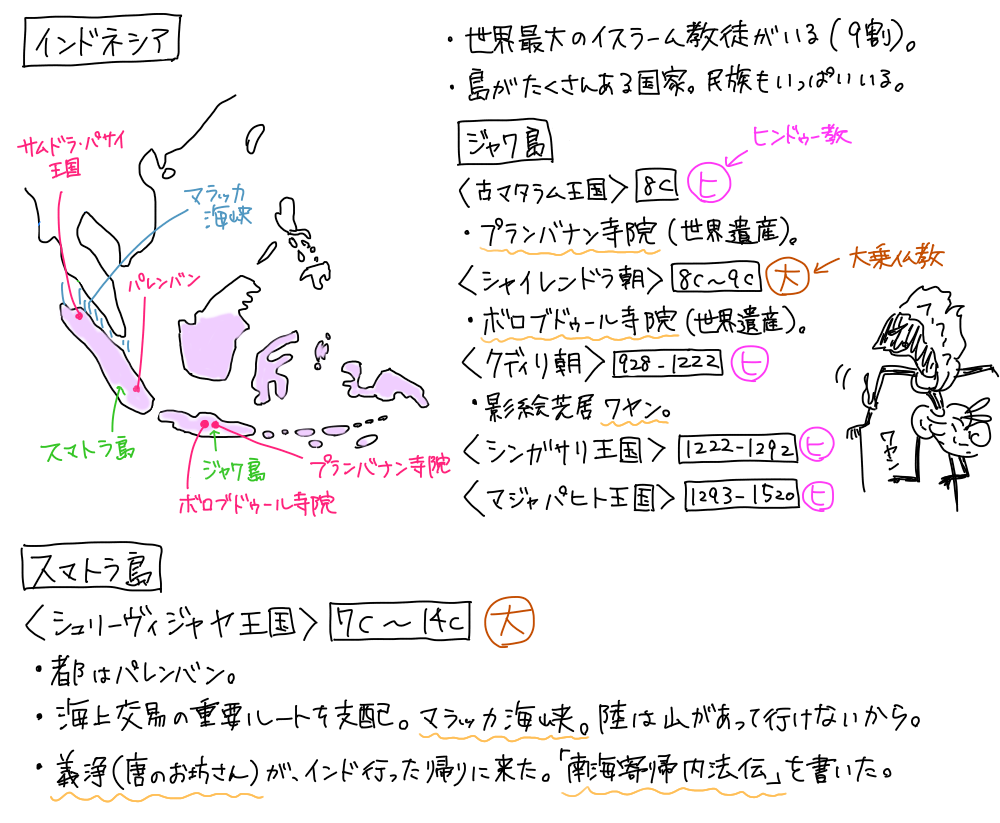 インドネシア
・世界最大のイスラーム教徒がいる(9割)。
・島がたくさんある国家。民族もいっぱいいる。
サムドラ・パサイ
王国
マラッカ
海峡
パレンバン
スマトラ島
ジャワ島
プランバナン寺院
ボロブドゥール寺院
ジャワ島
ヒンドゥー教
〈古マタラム王国〉 8C ヒ
・プランバナン寺院(世界遺産)。
大乗仏教
〈シャイレンドラ朝〉 8C〜9C 大
・ボロブドゥール寺院(世界遺産)。
〈クディリ朝〉 928-1222 ヒ
・影絵芝居ワヤン。
〈シンガサリ王国〉 1222-1292 ヒ
〈マジャパヒト王国〉 1293-1520 ヒ
ワヤン
スマトラ島
〈シュリーヴィジャヤ王国〉 7C〜14C 大
・都はパレンバン。
・海上交易の重要ルートを支配。マラッカ海峡。陸は山があって行けないから。
・義浄(唐のお坊さん)が、インド行った帰りに来た。「南海寄帰内法伝」を書いた。